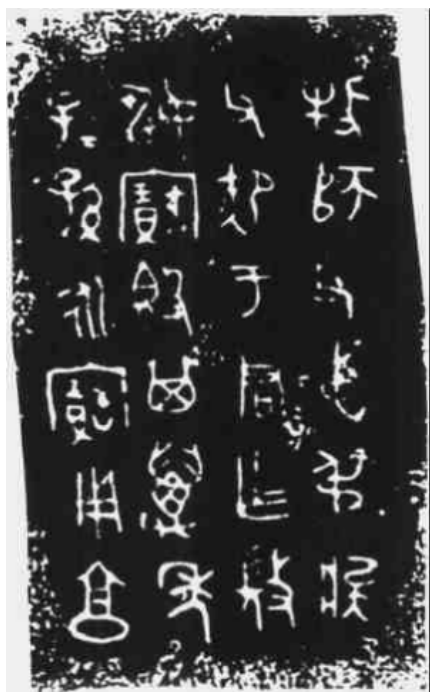 牧師父弟叔
父御于君作微
姚寶簋其萬年
子孫永寶用享